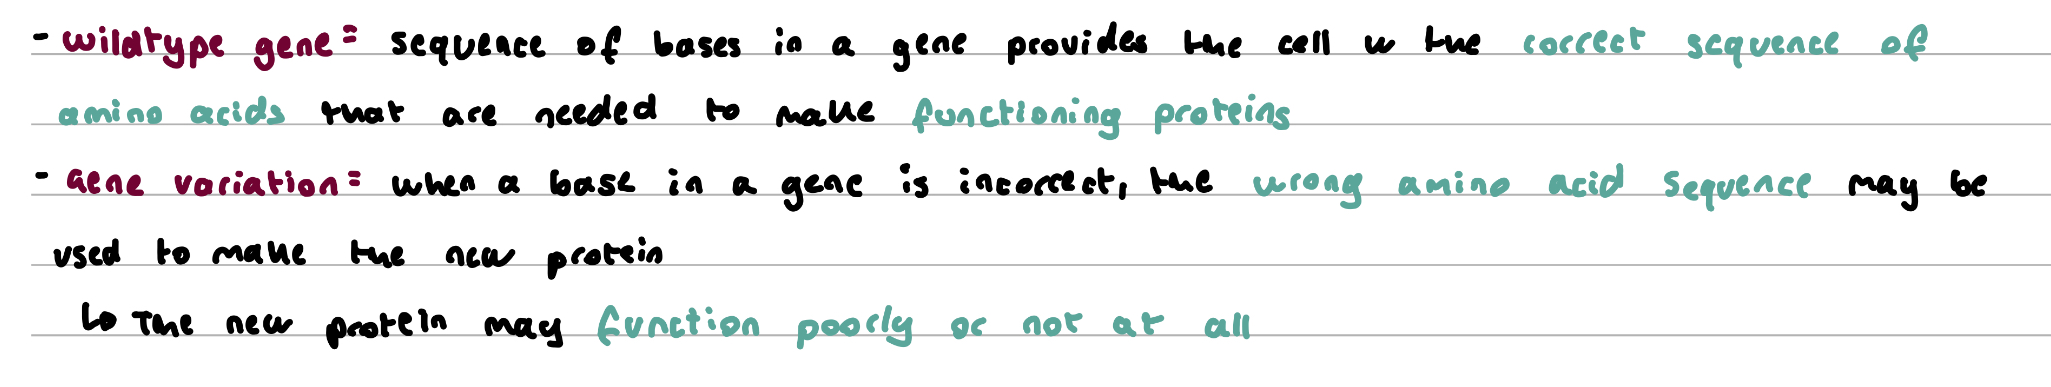 - wildtype gene = sequence of bases in a gene provides the cell w the correct sequence of
amino acids that are needed to make functioning proteins
- Gene variation = when a base in a gene is incorrect, the wrong amino acid sequence may be
used to make the new protein
↳ The new protein may function poorly or not at all